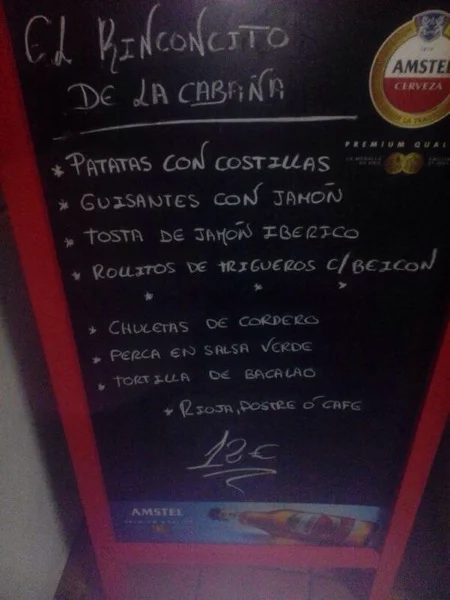 EL RINCONCITO
DE LA CABAÑA
AMSTEL
CERVEZA
PREMIUM QUAL
* PATATAS CON COSTILLAS
* GUISANTES CON JAMÓN
* TOSTA DE JAMÓN IBERICO
* ROLLITOS DE TRIGUEROS C/BEICON
* * *
* CHULETAS DE CORDERO
* PERCA EN SALSA VERDE
* TORTILLA DE BACALAO
* RIOJA, POSTRE Ó CAFE
12€
AMSTEL